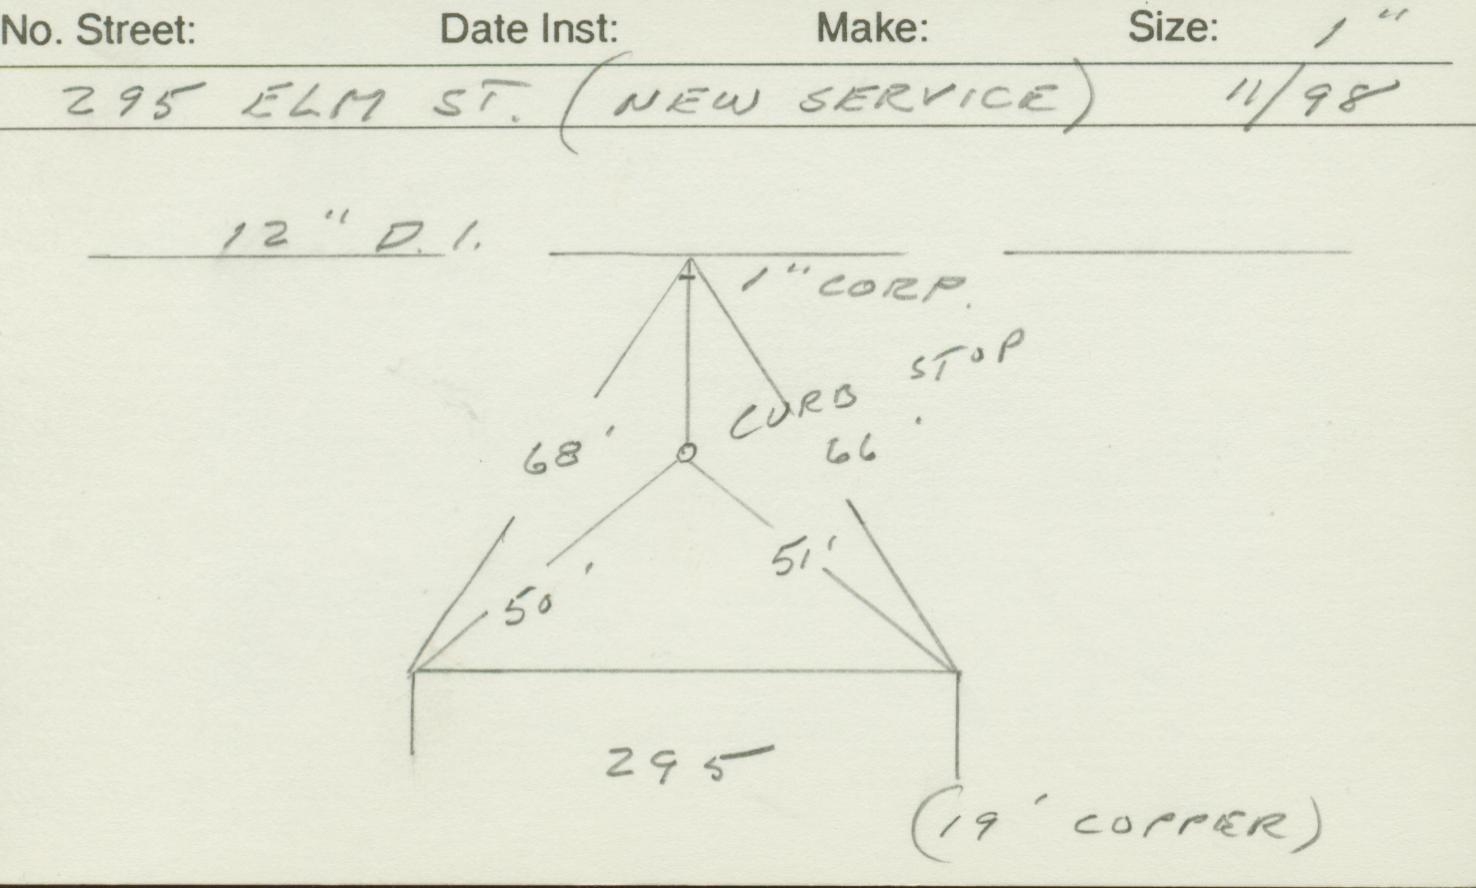 No. Street: Date Inst: Make: Size: 1"
295 ELM ST. (NEW SERVICE) 11/98
12" D.I.
1" CORP.
CURB STOP
68' 66'
50' 51'
295
(19' COPPER)